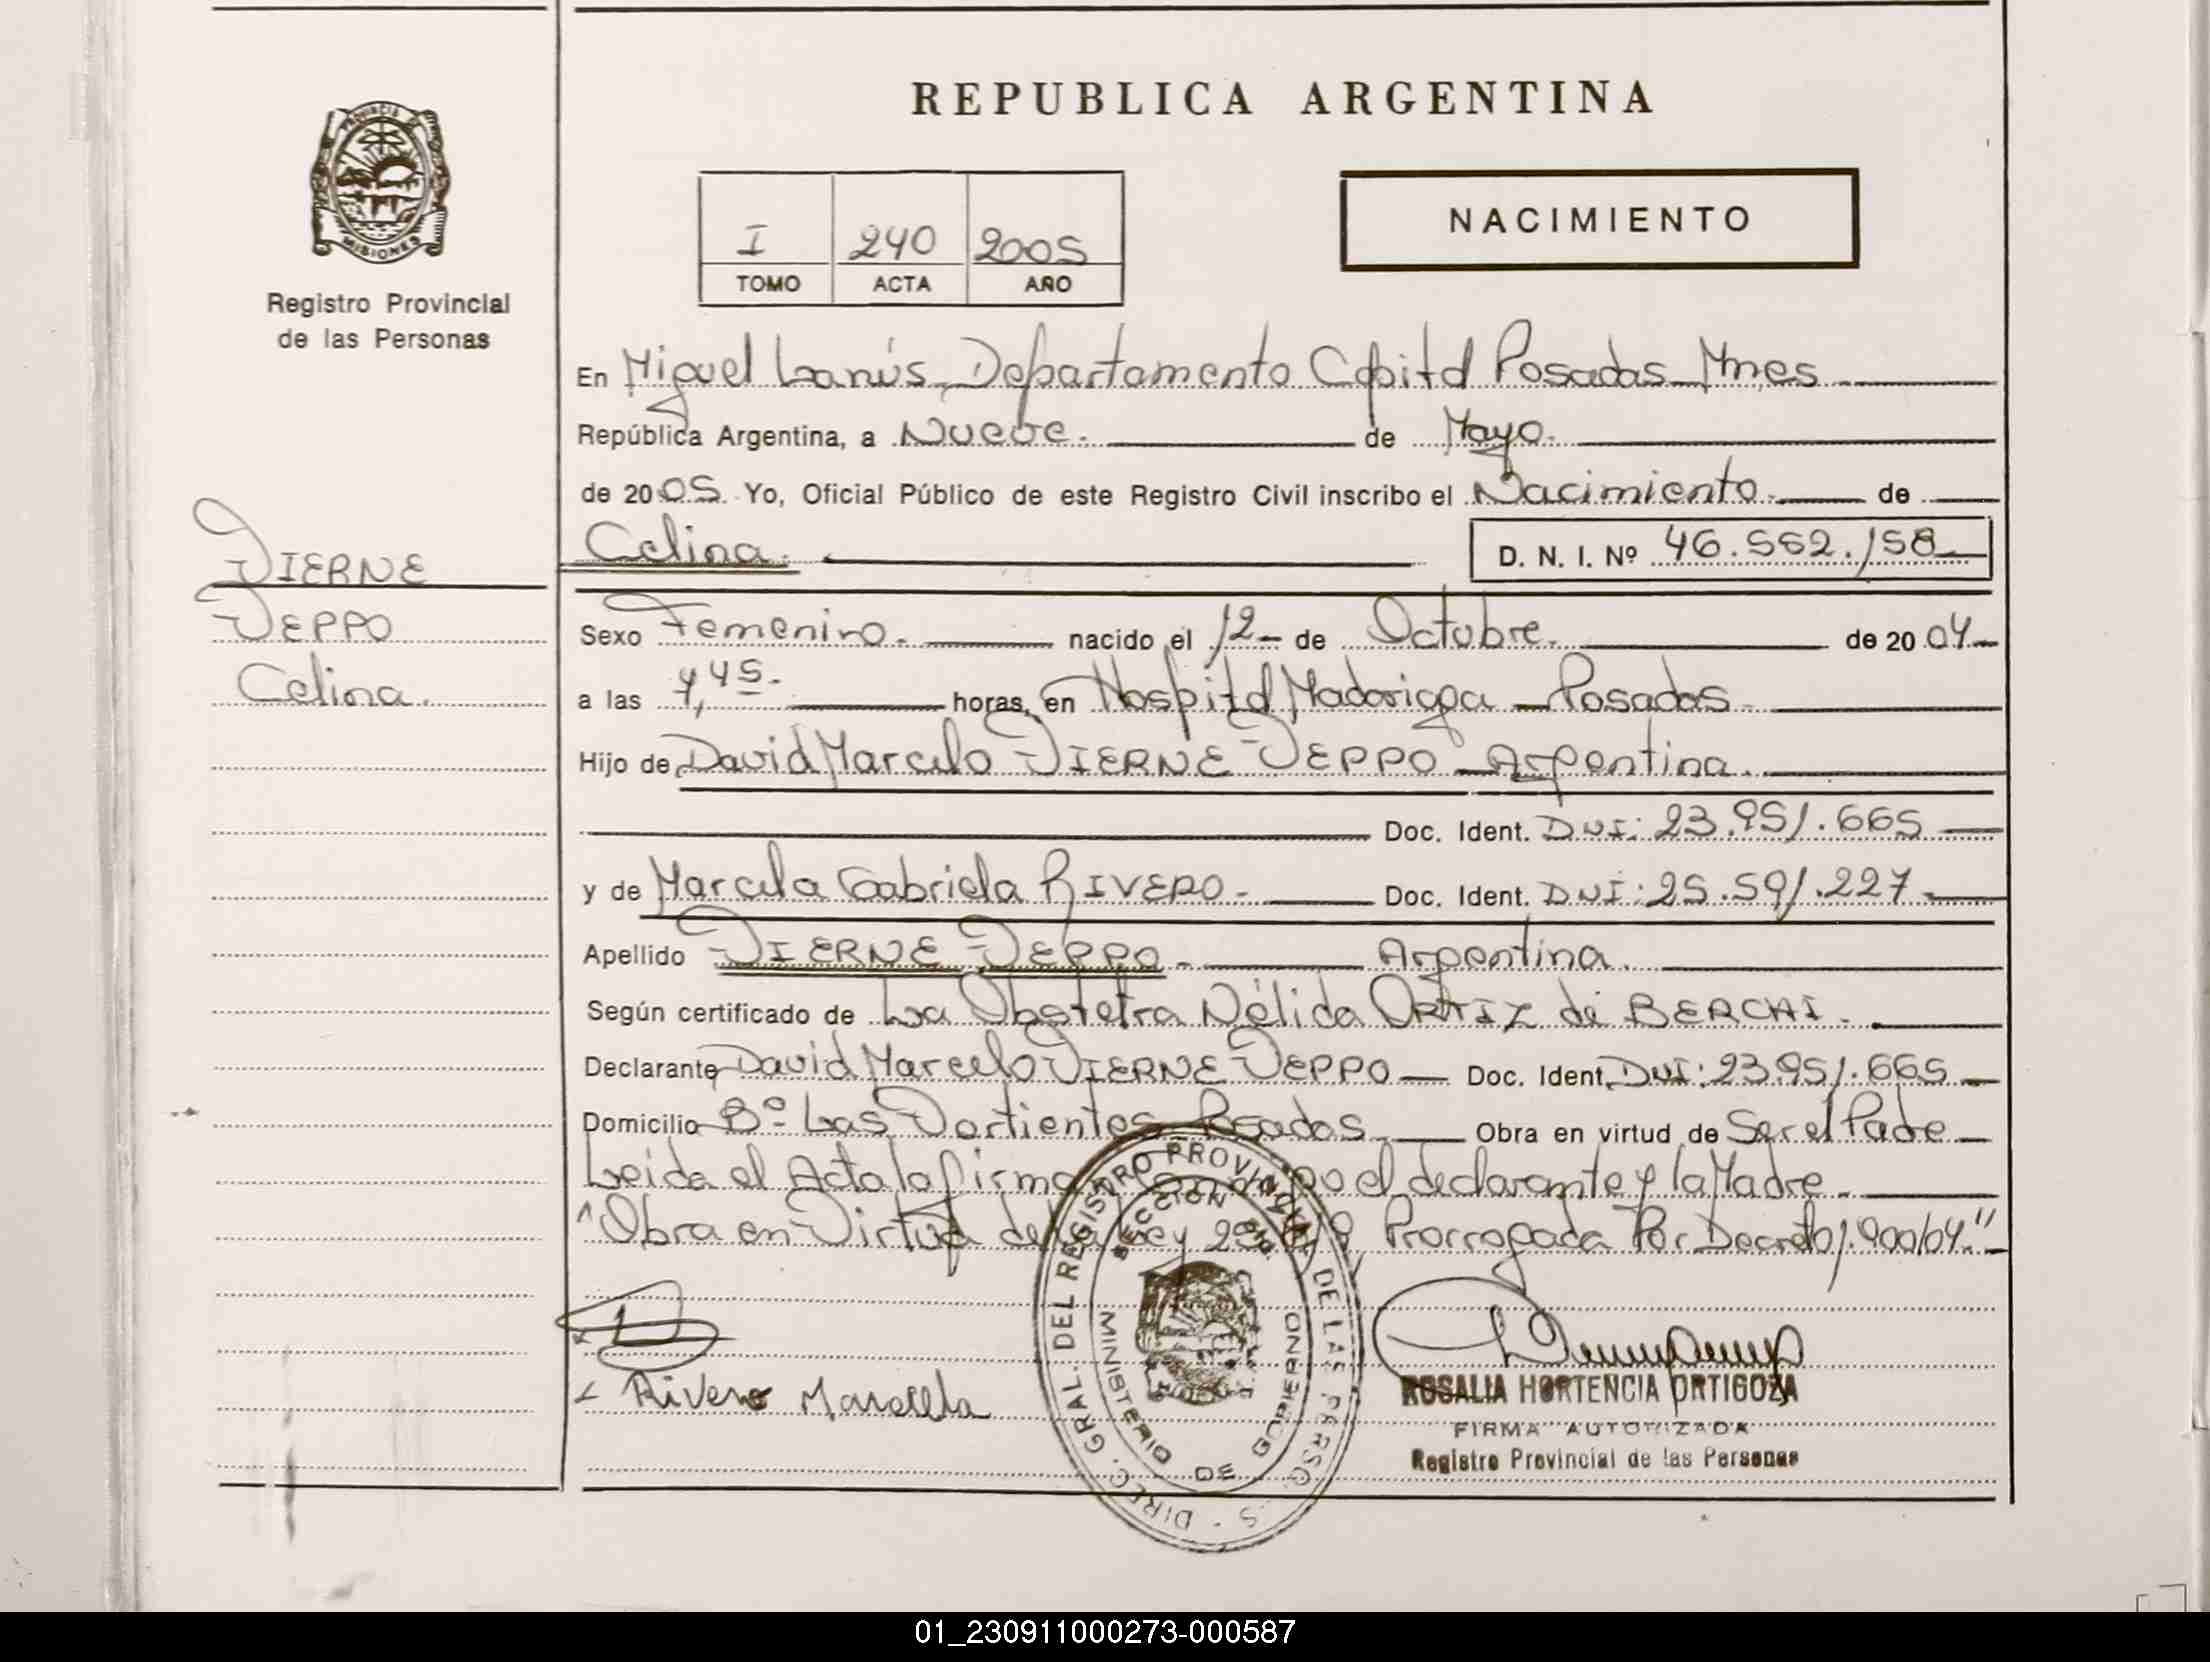 REPUBLICA ARGENTINA
PROVINCIA DE
MISIONES
Registro Provincial
de las Personas
I 240 2005
TOMO ACTA AÑO
NACIMIENTO
En Miguel Lanús, Departamento Capital Posadas Mnes
República Argentina, a Nueve. de Mayo.
de 2005. Yo, Oficial Público de este Registro Civil inscribo el Nacimiento. de
Celina. D. N. I. Nº 46.562.158
VIERNE
JEPPO
Celina.
Sexo Femenino. nacido el 12 de Octubre. de 2004
a las 4,45. horas, en Hospital Madariaga Posadas.
Hijo de David Marcelo VIERNE JEPPO Argentina.
Doc. Ident. DNI: 23.951.665
y de Marcela Gabriela RIVERO. Doc. Ident. DNI: 25.591.227
Apellido VIERNE JEPPO. Argentina.
Según certificado de La Obstetra Nélida ORTIZ de BERCHI.
Declarante David Marcelo VIERNE JEPPO Doc. Ident. DNI: 23.951.665
Domicilio Bº Las Vertientes Posadas. Obra en virtud de Ser el Padre
Leida el Acta la firma el declarante y la Madre.
"Obra en Virtud de la Ley Prorrogada Por Decreto 1.900/04."
Rivero Marcela
DIREC. GRAL. DEL REGISTRO PROVINCIAL DE LAS PERSONAS
MINISTERIO DE GOBIERNO
ROSALIA HORTENCIA ORTIGOZA
FIRMA AUTORIZADA
Registro Provincial de las Personas
01_230911000273-000587